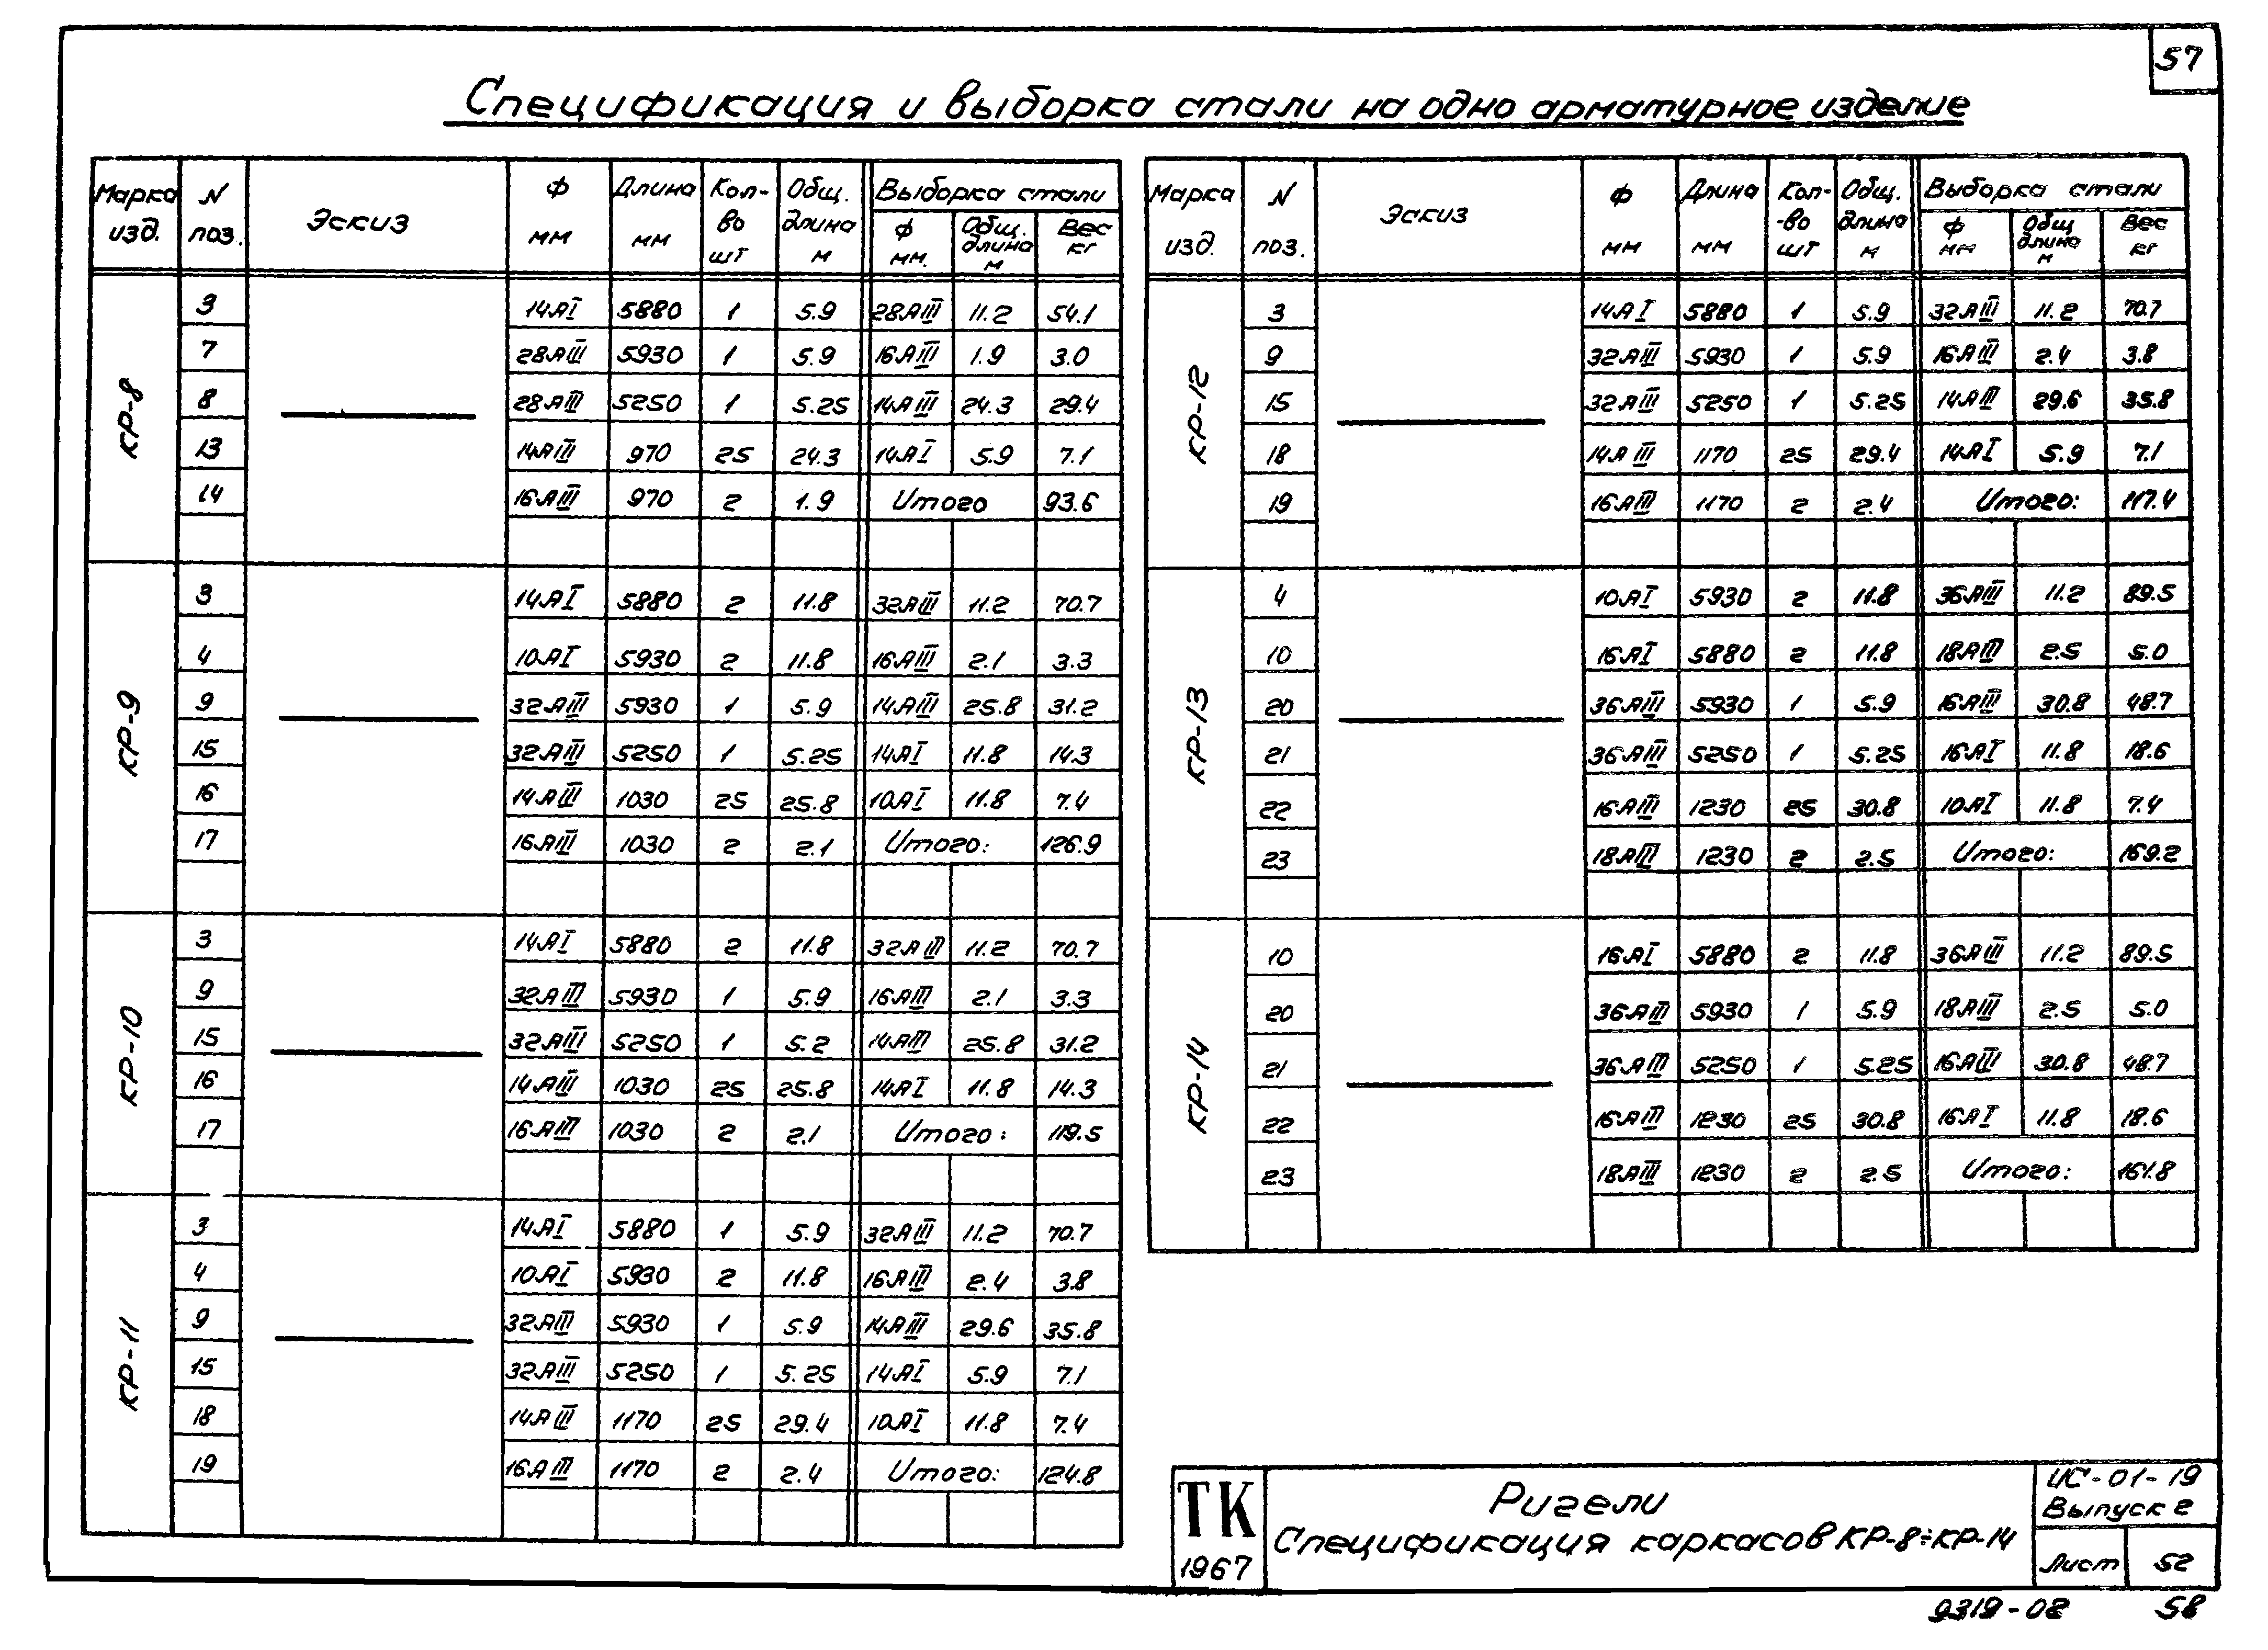 57
Спецификация и выборка стали на одно арматурное изделие
Марка изд. | N поз. | Эскиз | Ф мм | Длина мм | Кол-во шт | Общ. длина м | Выборка стали: Ф мм. | Общ. длина м | Вес кг
КР-8
3 | 14АI | 5880 | 1 | 5.9 | 28АIII | 11.2 | 54.1
7 | 28АIII | 5930 | 1 | 5.9 | 16АIII | 1.9 | 3.0
8 | 28АIII | 5250 | 1 | 5.25 | 14АIII | 24.3 | 29.4
13 | 14АIII | 970 | 25 | 24.3 | 14АI | 5.9 | 7.1
14 | 16АIII | 970 | 2 | 1.9 | Итого | 93.6
КР-9
3 | 14АI | 5880 | 2 | 11.8 | 32АIII | 11.2 | 70.7
4 | 10АI | 5930 | 2 | 11.8 | 16АIII | 2.1 | 3.3
9 | 32АIII | 5930 | 1 | 5.9 | 14АIII | 25.8 | 31.2
15 | 32АIII | 5250 | 1 | 5.25 | 14АI | 11.8 | 14.3
16 | 14АIII | 1030 | 25 | 25.8 | 10АI | 11.8 | 7.4
17 | 16АIII | 1030 | 2 | 2.1 | Итого: | 126.9
КР-10
3 | 14АI | 5880 | 2 | 11.8 | 32АIII | 11.2 | 70.7
9 | 32АIII | 5930 | 1 | 5.9 | 16АIII | 2.1 | 3.3
15 | 32АIII | 5250 | 1 | 5.2 | 14АIII | 25.8 | 31.2
16 | 14АIII | 1030 | 25 | 25.8 | 14АI | 11.8 | 14.3
17 | 16АIII | 1030 | 2 | 2.1 | Итого: | 119.5
КР-11
3 | 14АI | 5880 | 1 | 5.9 | 32АIII | 11.2 | 70.7
4 | 10АI | 5930 | 2 | 11.8 | 16АIII | 2.4 | 3.8
9 | 32АIII | 5930 | 1 | 5.9 | 14АIII | 29.6 | 35.8
15 | 32АIII | 5250 | 1 | 5.25 | 14АI | 5.9 | 7.1
18 | 14АIII | 1170 | 25 | 29.4 | 10АI | 11.8 | 7.4
19 | 16АIII | 1170 | 2 | 2.4 | Итого: | 124.8
Марка изд. | N поз. | Эскиз | Ф мм | Длина мм | Кол--во шт | Общ. длина м | Выборка стали: Ф мм | Общ длина м | Вес кг
КР-12
3 | 14АI | 5880 | 1 | 5.9 | 32АIII | 11.2 | 70.7
9 | 32АIII | 5930 | 1 | 5.9 | 16АIII | 2.4 | 3.8
15 | 32АIII | 5250 | 1 | 5.25 | 14АIII | 29.6 | 35.8
18 | 14АIII | 1170 | 25 | 29.4 | 14АI | 5.9 | 7.1
19 | 16АIII | 1170 | 2 | 2.4 | Итого: | 117.4
КР-13
4 | 10АI | 5930 | 2 | 11.8 | 36АIII | 11.2 | 89.5
10 | 16АI | 5880 | 2 | 11.8 | 18АIII | 2.5 | 5.0
20 | 36АIII | 5930 | 1 | 5.9 | 16АIII | 30.8 | 48.7
21 | 36АIII | 5250 | 1 | 5.25 | 16АI | 11.8 | 18.6
22 | 16АIII | 1230 | 25 | 30.8 | 10АI | 11.8 | 7.4
23 | 18АIII | 1230 | 2 | 2.5 | Итого: | 169.2
КР-14
10 | 16АI | 5880 | 2 | 11.8 | 36АIII | 11.2 | 89.5
20 | 36АIII | 5930 | 1 | 5.9 | 18АIII | 2.5 | 5.0
21 | 36АIII | 5250 | 1 | 5.25 | 16АIII | 30.8 | 48.7
22 | 16АIII | 1230 | 25 | 30.8 | 16АI | 11.8 | 18.6
23 | 18АIII | 1230 | 2 | 2.5 | Итого: | 161.8
ТК
1967
Ригели
Спецификация каркасов КР-8÷КР-14
ИС-01-19
Выпуск 2
Лист 52
9319-02 58